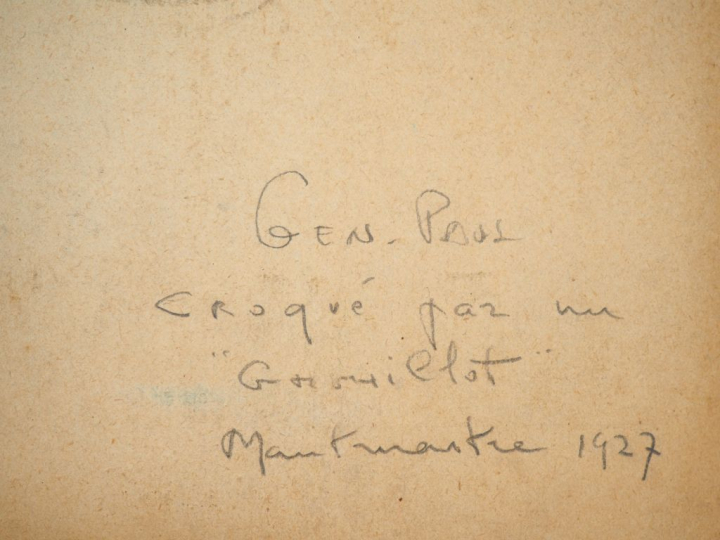 GEN-PAUL
CROQUÉ par un
"Grouillot"
Montmartre 1927